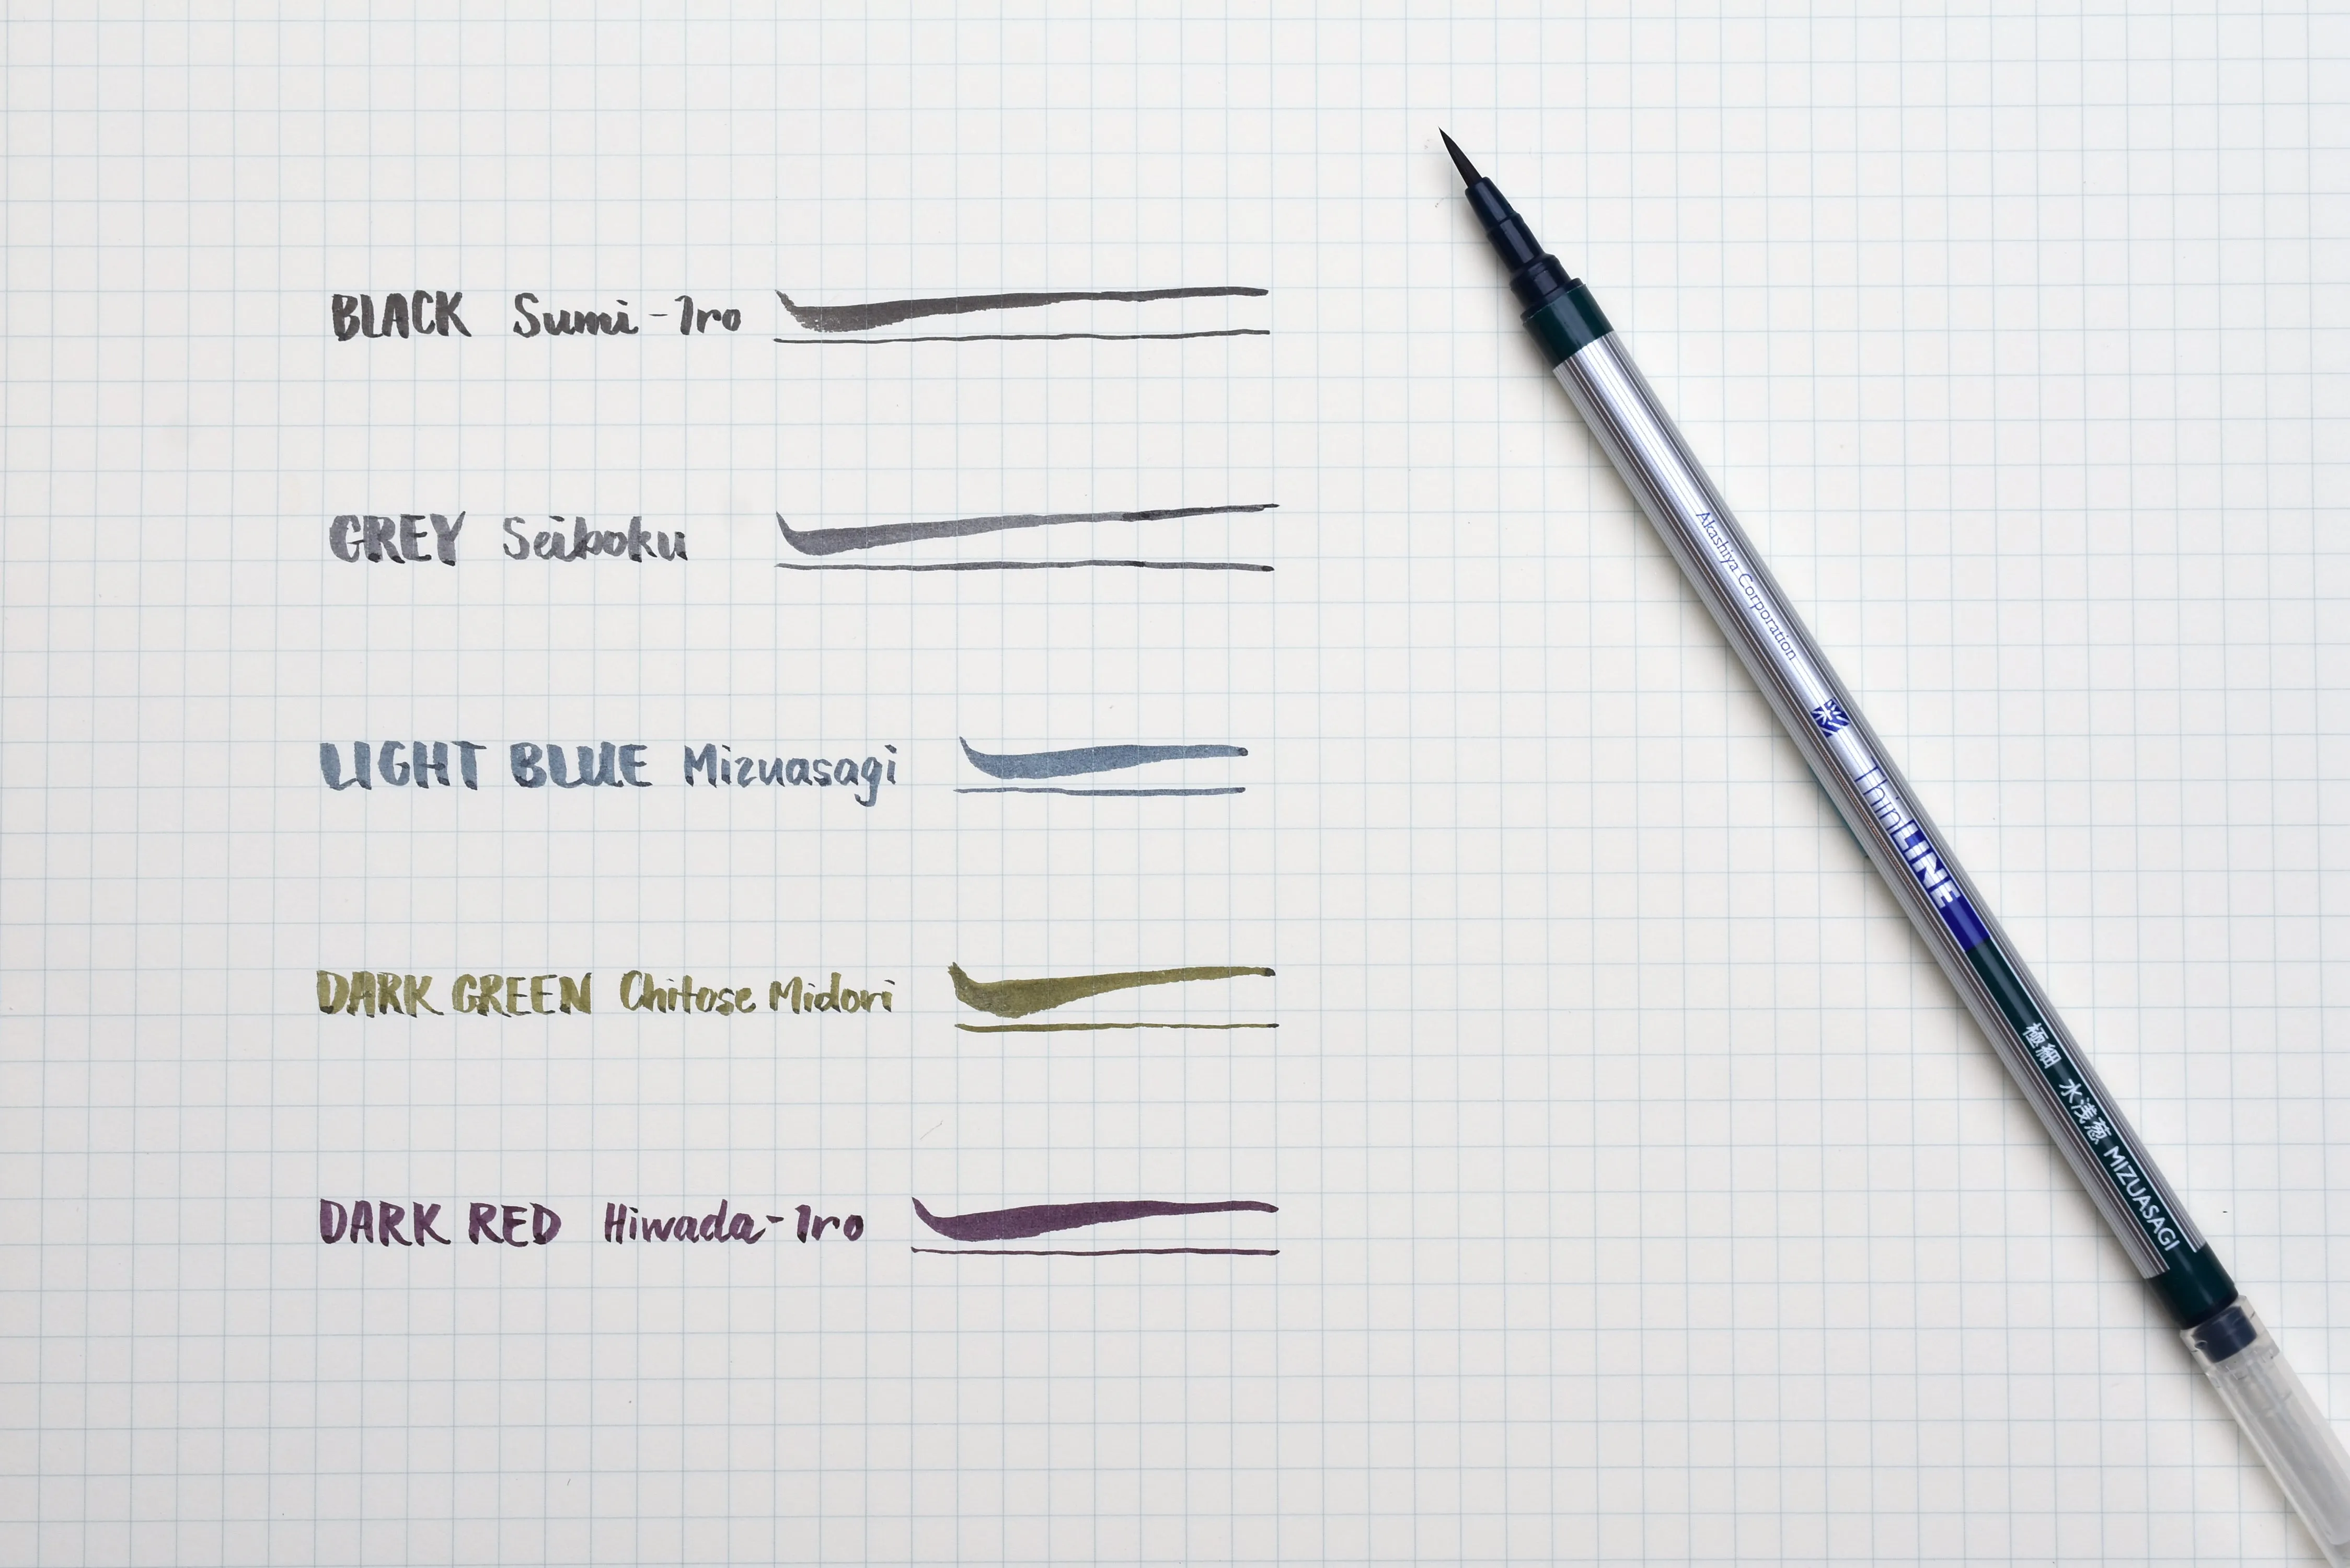 BLACK Sumi-Iro
GREY Seiboku
LIGHT BLUE Mizuasagi
DARK GREEN Chitose Midori
DARK RED Hiwada-Iro
Akashiya Corporation
彩 ThinLINE
極細 水浅葱 MIZUASAGI